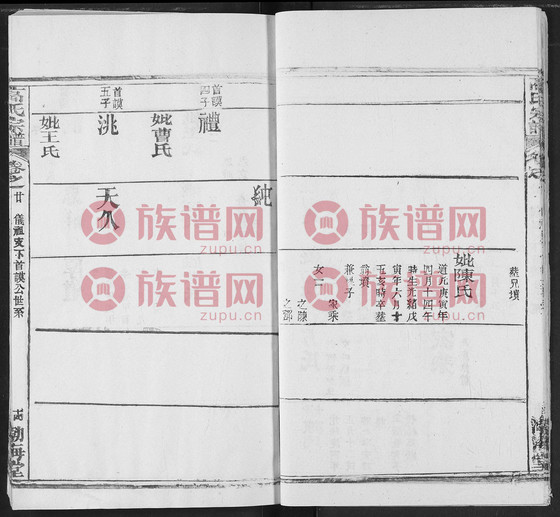 蔡兄墳
妣陳氏
道光庚寅年
四月十四午
時生光緒戊
寅年六月十
五亥時卒塟
翁墳
兼乗子
宋乗
女二
之陳
之鄒
首謨
四子
禮
妣曹氏
首謨
五子
洮
妣王氏
純
天久
氏宗譜
卷之
廿
儀祖支下首謨公世系
渤海堂
族谱网
zupu.cn
族谱网
zupu.cn
族谱网
zupu.cn
族谱网
zupu.cn